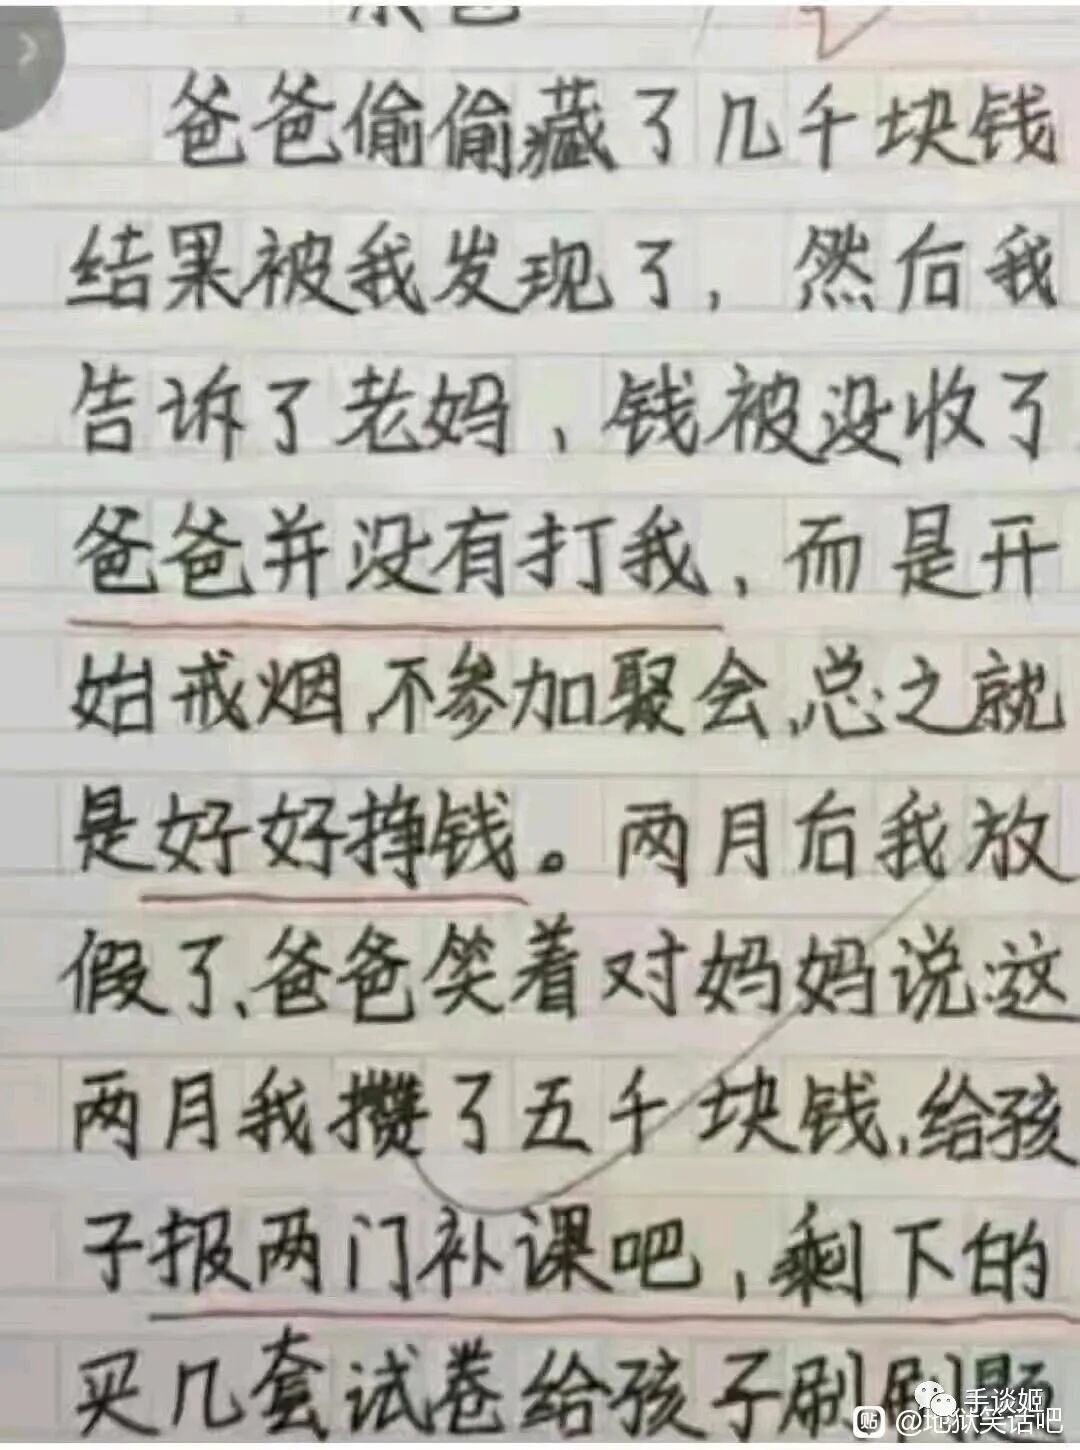 爸爸偷偷藏了几千块钱
结果被我发现了，然后我
告诉了老妈、钱被没收了
爸爸并没有打我，而是开
始戒烟、不参加聚会、总之就
是好好挣钱。两月后我放
假了、爸爸笑着对妈妈说:这
两月我攒了五千块钱、给孩
子报两门补课吧，剩下的
买几套试卷给孩子刷刷题
手谈姬
@地狱笑话吧